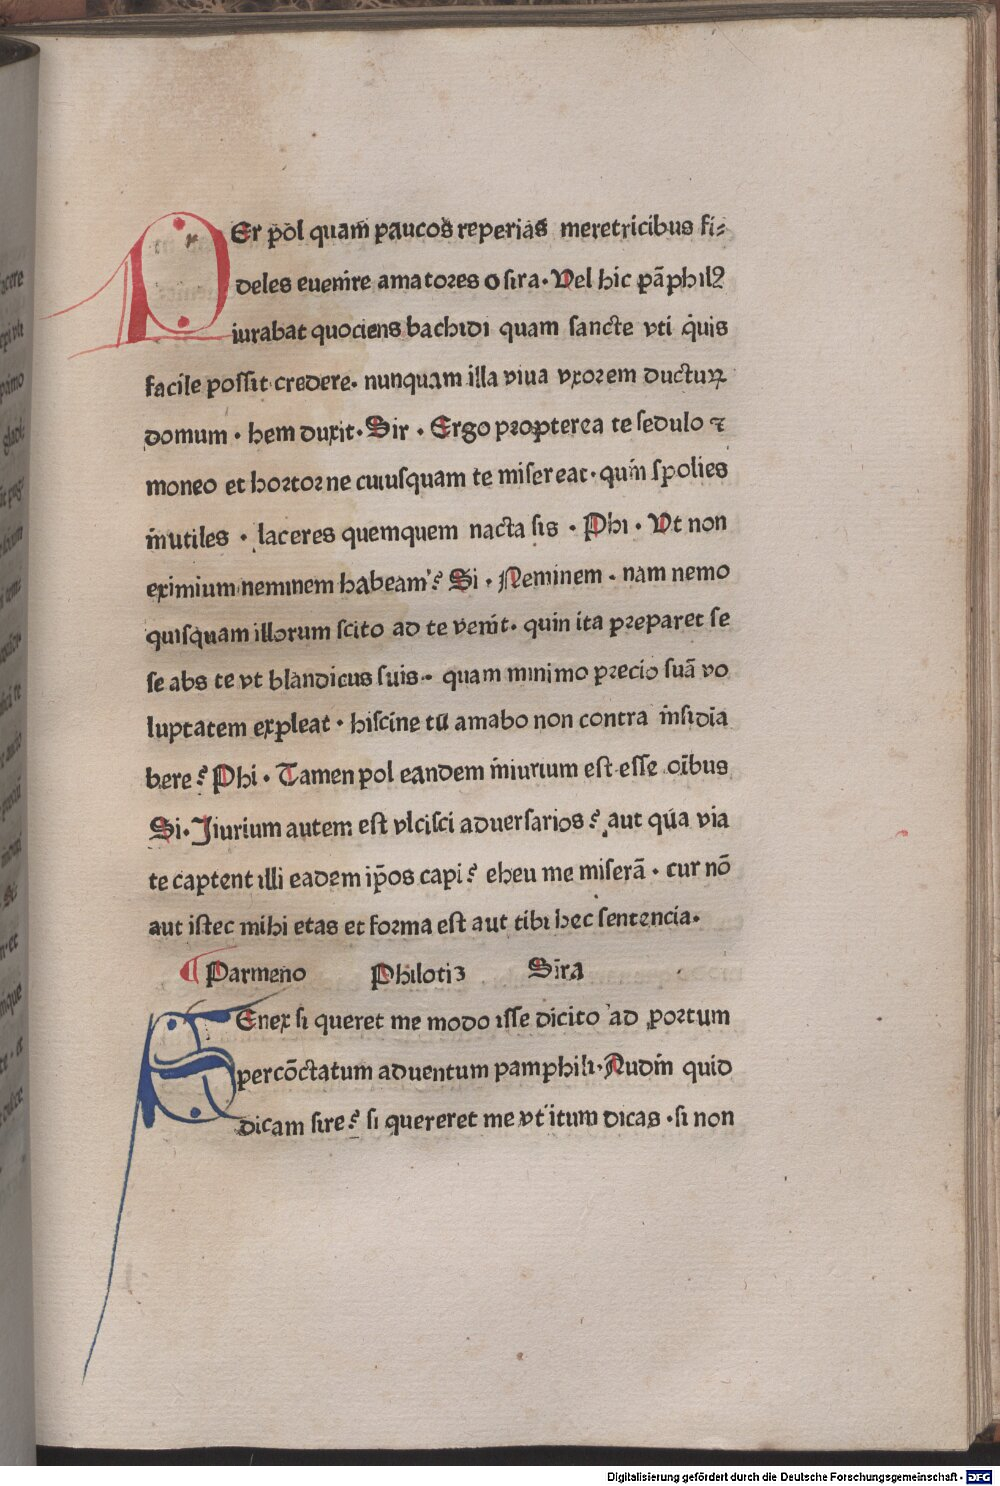 PEr pōl quam̄ paucos reperias meretricibus fi⸗
deles euenire amatores o sira· Vel hic pāphilꝰ
iurabat quociens bachidi quam sancte vti q̇uis
facile possit credere· nunquam illa viua vxorem ducturꝝ
domum · hem duxit· Sir · Ergo propterea te sedulo ⁊
moneo et hortor ne cuiusquam te misereat· quin spolies
m̄utiles · laceres quemquem nacta sis · Phi · Vt non
eximium neminem habeam'? Si · Neminem · nam nemo
quisquam illorum scito ad te venīt· quin ita preparet se
se abs te vt blandicus suis·· quam minimo precio suā vo
luptatem expleat · hiscine tu amabo non contra īnsidia
bere? Phi · Tamen pol eandem īniurium est esse oībus
Si· Jiurium autem est vlcisci aduersarios? aut qua via
te captent illi eadem ip̄os capi? eheu me miserā · cur nō
aut istec mihi etas et forma est aut tibi hec sentencia·
¶ Parmeno Philotiʒ Sīra
SEnex si queret me modo isse dicito ad portum
percōctatum aduentum pamphili· Audin̄ quid
dicam sire? si quereret me vt itum dicas ·si non
Digitalisierung gefördert durch die Deutsche Forschungsgemeinschaft - DFG